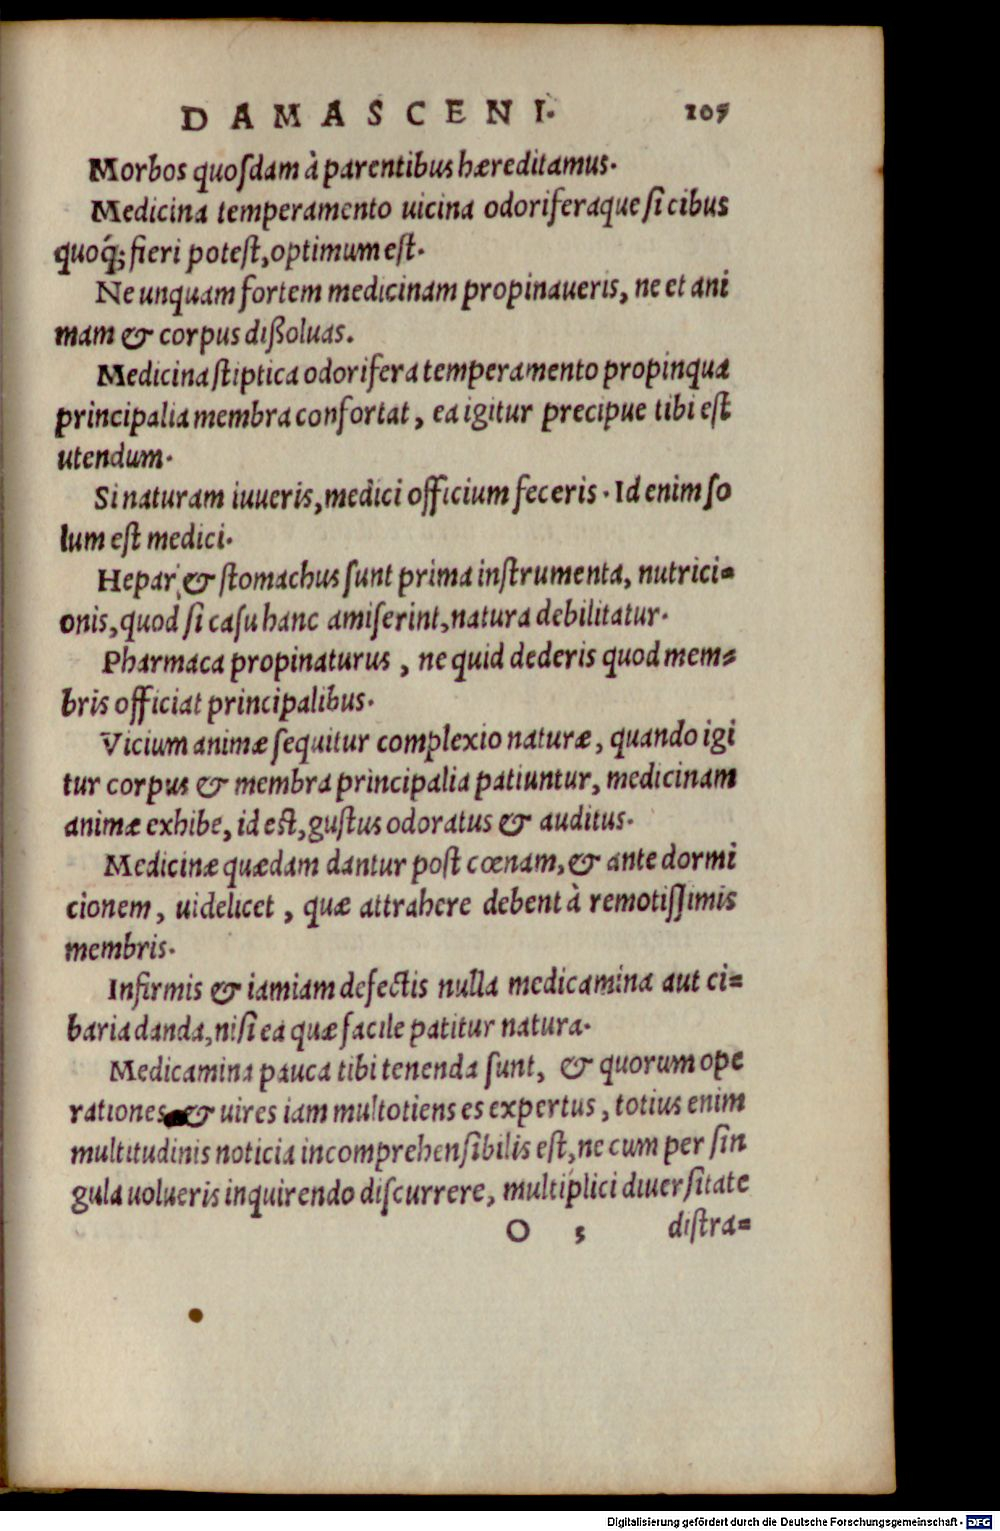 DAMASCENI. 109
Morbos quosdam à parentibus hæreditamus.
Medicina temperamento uicina odoriferaque si cibus
quoq́; fieri potest, optimum est.
Ne unquam fortem medicinam propinaueris, ne et ani
mam & corpus dißoluas.
Medicina stiptica odorifera temperamento propinqua
principalia membra confortat, ea igitur precipue tibi est
utendum.
Si naturam iuueris, medici officium feceris. Id enim so
lum est medici.
Hepar & stomachus sunt prima instrumenta, nutrici=
onis, quod si casu hanc amiserint, natura debilitatur.
Pharmaca propinaturus, ne quid dederis quod mem=
bris officiat principalibus.
Vicium animæ sequitur complexio naturæ, quando igi
tur corpus & membra principalia patiuntur, medicinam
animæ exhibe, id est, gustus odoratus & auditus.
Medicinæ quædam dantur post cœnam, & ante dormi
cionem, uidelicet, quæ attrahere debent à remotissimis
membris.
Infirmis & iamiam defectis nulla medicamina aut ci=
baria danda, nisi ea quæ facile patitur natura.
Medicamina pauca tibi tenenda sunt, & quorum ope
rationes & uires iam multotiens es expertus, totius enim
multitudinis noticia incomprehensibilis est, ne cum per sin
gula uolueris inquirendo discurrere, multiplici diuersitate
O 5 distra=
Digitalisierung gefördert durch die Deutsche Forschungsgemeinschaft - DFG